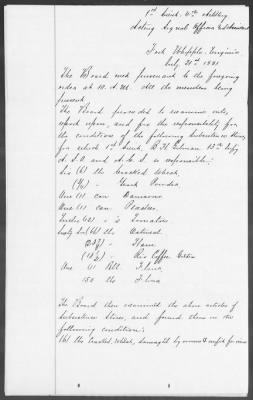 1st Lieut. 4th Artillery
Acting Signal Officer
Fort Whipple, Virginia
July 21st 1881
The Board met pursuant to the foregoing
order at 10 A.M. All the members being
present.
The Board proceeded to examine into,
report upon, and fix the responsibility for
the condition of the following Subsistence Stores,
for which 1st Lieut. 13th Infty
A.S.O. and A.C.S. is responsible;
Six (6) lbs Cracked Wheat,
Yeast Powder
One (1) can
One (1) can Peaches
Twelve (12) " " Tomatoes
(66) lbs Oatmeal
" Ham
" Rio Coffee
One (1) Bbl. Flour
150 lbs Flour
The Board then examined the above articles of
Subsistence Stores, and found them in the
following condition:
(6) lbs Cracked Wheat, damaged by worms & unfit for issue